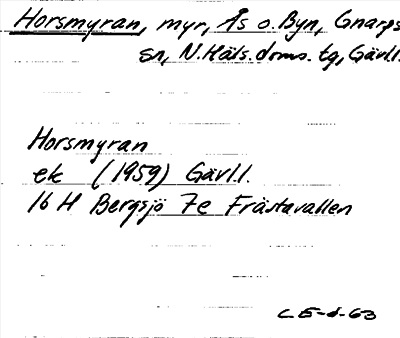 Horsmyran, myr, Ås o. Byn, Gnarps
sn, N. Häls. doms. tg, Gävl.l.
Horsmyran
ek (1959) Gävl.l.
16 H Bergsjö 7e Frästavallen
CE-d-63